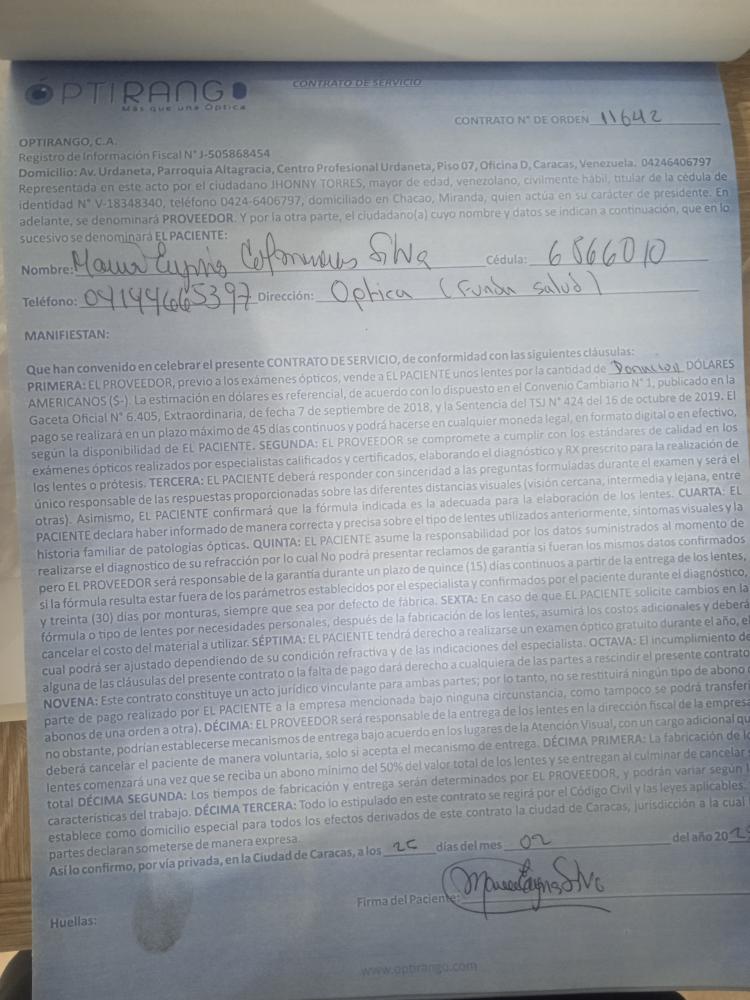 ÓPTIRANGO
Más que una Óptica
CONTRATO DE SERVICIO
CONTRATO N° DE ORDEN 11642
OPTIRANGO, C.A.
Registro de Información Fiscal N° J-505868454
Domicilio: Av. Urdaneta, Parroquia Altagracia, Centro Profesional Urdaneta, Piso 07, Oficina D, Caracas, Venezuela. 04246406797
Representada en este acto por el ciudadano JHONNY TORRES, mayor de edad, venezolano, civilmente hábil, titular de la cédula de
identidad N° V-18348340, teléfono 0424-6406797, domiciliado en Chacao, Miranda, quien actúa en su carácter de presidente. En
adelante, se denominará PROVEEDOR. Y por la otra parte, el ciudadano(a) cuyo nombre y datos se indican a continuación, que en lo
sucesivo se denominará EL PACIENTE:
Nombre: Silva Cédula: 6866010
Teléfono: Dirección: Optica (Funda salud)
MANIFIESTAN:
Que han convenido en celebrar el presente CONTRATO DE SERVICIO, de conformidad con las siguientes cláusulas:
PRIMERA: EL PROVEEDOR, previo a los exámenes ópticos, vende a EL PACIENTE unos lentes por la cantidad de Donacion DÓLARES
AMERICANOS ($-). La estimación en dólares es referencial, de acuerdo con lo dispuesto en el Convenio Cambiario N° 1, publicado en la
Gaceta Oficial N° 6.405, Extraordinaria, de fecha 7 de septiembre de 2018, y la Sentencia del TSJ N° 424 del 16 de octubre de 2019. El
pago se realizará en un plazo máximo de 45 días continuos y podrá hacerse en cualquier moneda legal, en formato digital o en efectivo,
según la disponibilidad de EL PACIENTE. SEGUNDA: EL PROVEEDOR se compromete a cumplir con los estándares de calidad en los
exámenes ópticos realizados por especialistas calificados y certificados, elaborando el diagnóstico y RX prescrito para la realización de
los lentes o prótesis. TERCERA: EL PACIENTE deberá responder con sinceridad a las preguntas formuladas durante el examen y será el
único responsable de las respuestas proporcionadas sobre las diferentes distancias visuales (visión cercana, intermedia y lejana, entre
otras). Asimismo, EL PACIENTE confirmará que la fórmula indicada es la adecuada para la elaboración de los lentes. CUARTA: EL
PACIENTE declara haber informado de manera correcta y precisa sobre el tipo de lentes utilizados anteriormente, síntomas visuales y la
historia familiar de patologías ópticas. QUINTA: EL PACIENTE asume la responsabilidad por los datos suministrados al momento de
realizarse el diagnostico de su refracción por lo cual No podrá presentar reclamos de garantía si fueran los mismos datos confirmados
pero EL PROVEEDOR será responsable de la garantía durante un plazo de quince (15) días continuos a partir de la entrega de los lentes,
si la fórmula resulta estar fuera de los parámetros establecidos por el especialista y confirmados por el paciente durante el diagnóstico,
y treinta (30) días por monturas, siempre que sea por defecto de fábrica. SEXTA: En caso de que EL PACIENTE solicite cambios en la
fórmula o tipo de lentes por necesidades personales, después de la fabricación de los lentes, asumirá los costos adicionales y deberá
cancelar el costo del material a utilizar. SÉPTIMA: EL PACIENTE tendrá derecho a realizarse un examen óptico gratuito durante el año, el
cual podrá ser ajustado dependiendo de su condición refractiva y de las indicaciones del especialista. OCTAVA: El incumplimiento de
alguna de las cláusulas del presente contrato o la falta de pago dará derecho a cualquiera de las partes a rescindir el presente contrato
NOVENA: Este contrato constituye un acto jurídico vinculante para ambas partes; por lo tanto, no se restituirá ningún tipo de abono
parte de pago realizado por EL PACIENTE a la empresa mencionada bajo ninguna circunstancia, como tampoco se podrá transferi
abonos de una orden a otra). DÉCIMA: EL PROVEEDOR será responsable de la entrega de los lentes en la dirección fiscal de la empresa
no obstante, podrían establecerse mecanismos de entrega bajo acuerdo en los lugares de la Atención Visual, con un cargo adicional qu
deberá cancelar el paciente de manera voluntaria, solo si acepta el mecanismo de entrega. DÉCIMA PRIMERA: La fabricación de lo
lentes comenzará una vez que se reciba un abono mínimo del 50% del valor total de los lentes y se entregan al culminar de cancelar
total DÉCIMA SEGUNDA: Los tiempos de fabricación y entrega serán determinados por EL PROVEEDOR, y podrán variar según
características del trabajo. DÉCIMA TERCERA: Todo lo estipulado en este contrato se regirá por el Código Civil y las leyes aplicables.
establece como domicilio especial para todos los efectos derivados de este contrato la ciudad de Caracas, jurisdicción a la cual
partes declaran someterse de manera expresa.
Así lo confirmo, por vía privada, en la Ciudad de Caracas, a los días del mes 02 del año 202
Firma del Paciente:
Huellas:
www.optirango.com